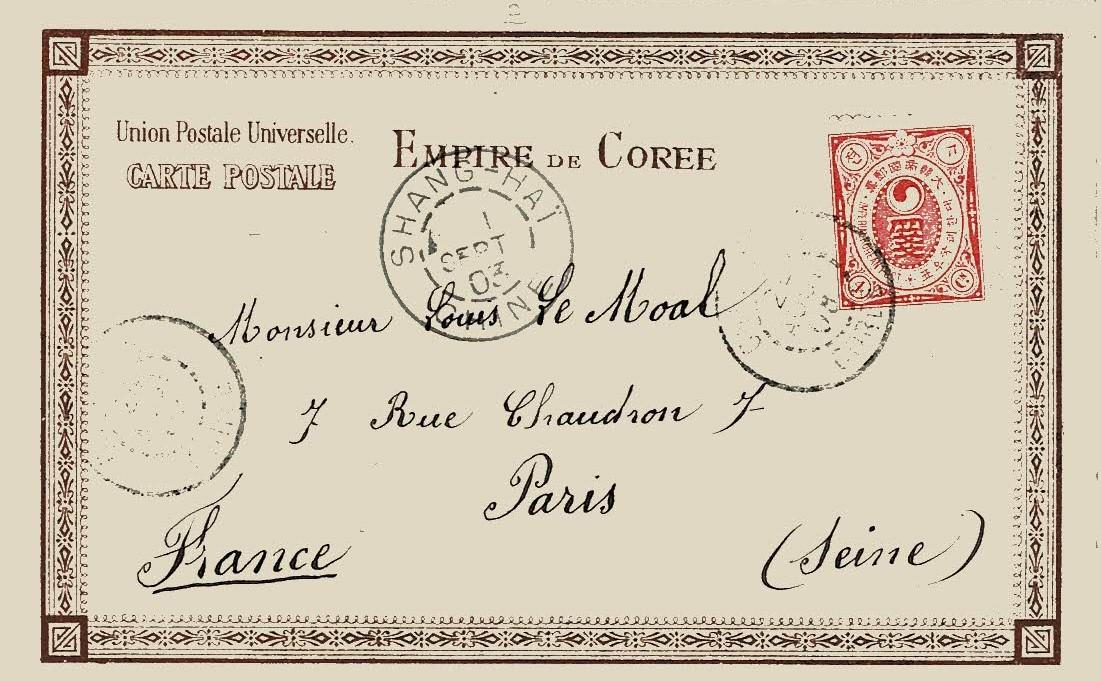 Union Postale Universelle.
CARTE POSTALE
EMPIRE DE COREE
SHANG-HAÏ
1
SEPT
03
CHINE
Monsieur Louis Le Moal
7 Rue Chaudron 7
Paris
(Seine)
France